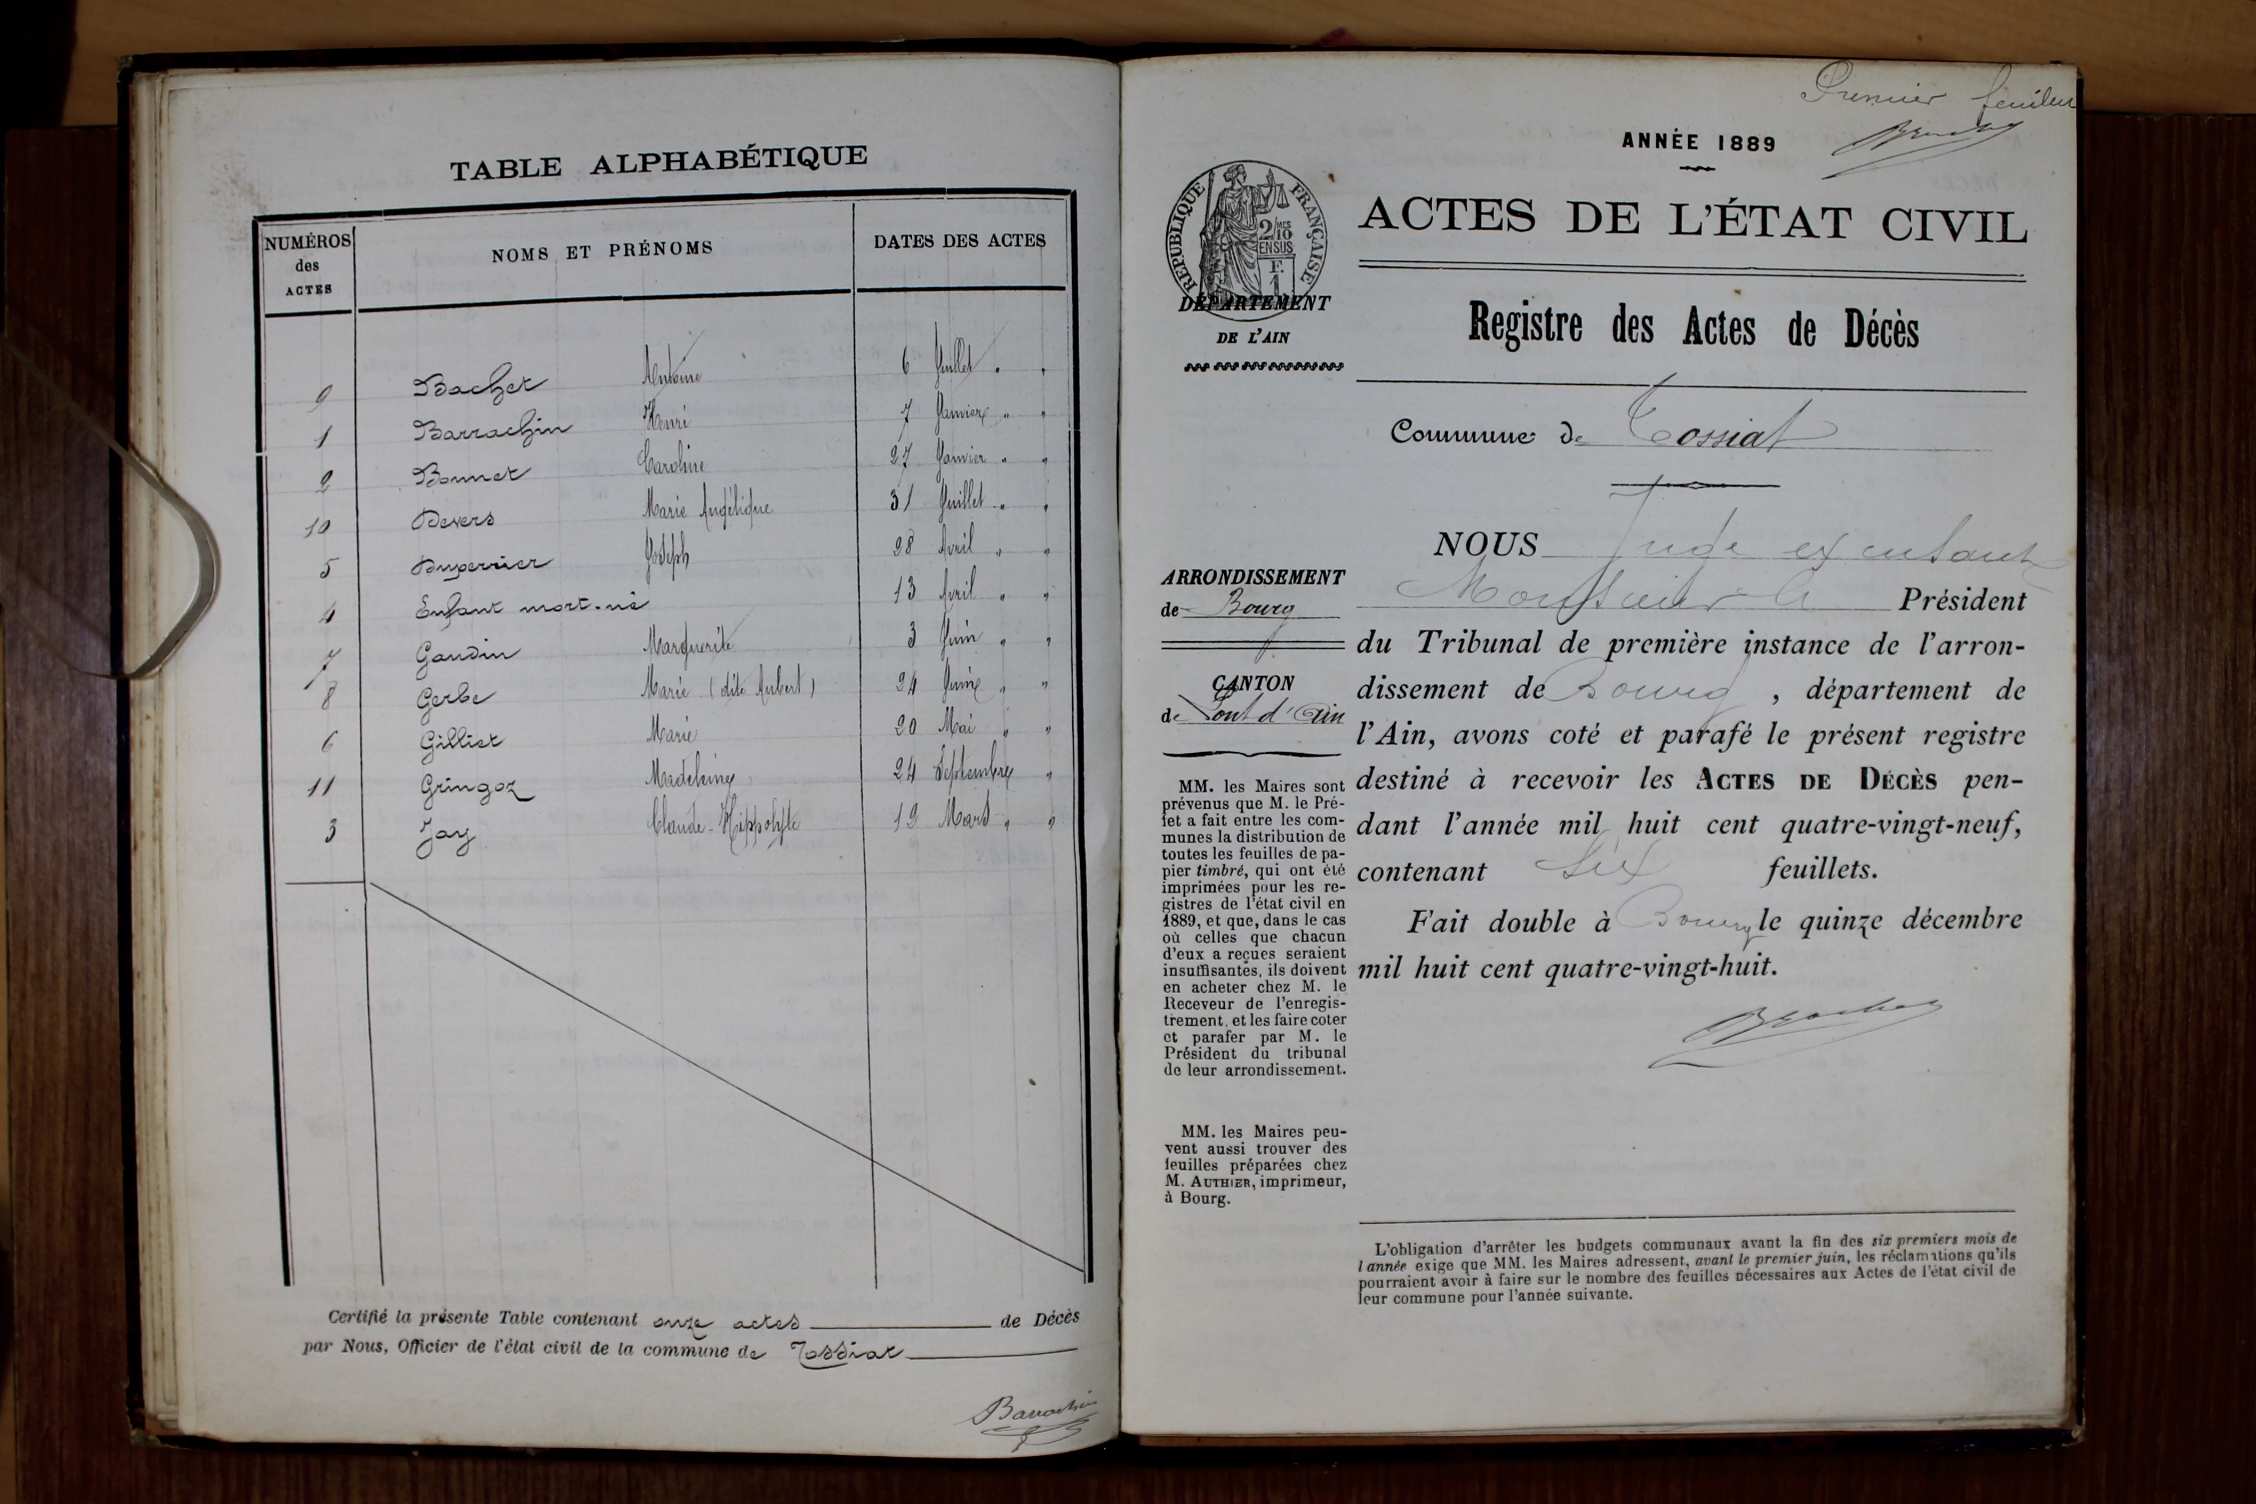 TABLE ALPHABÉTIQUE
NUMÉROS des ACTES NOMS ET PRÉNOMS DATES DES ACTES
9 Bachet Antoine 6 Juillet " "
1 Barrachin Henri 7 Janvier " "
2 Bonnet Caroline 27 Janvier " "
10 Devers Marie Angélique 31 Juillet " "
5 Duperrier Joseph 28 Avril " "
4 Enfant mort-né 13 Avril " "
7 Gaudin Marguerite 3 Juin " "
8 Gerbe Marie (dite Aubert) 24 Juin " "
6 Gilliet Marie 20 Mai " "
11 Gringoz Madeleine 24 Septembre "
3 Jay Claude-Hippolyte 19 Mars " "
Certifié la présente Table contenant onze actes de Décès
par Nous, Officier de l'état civil de la commune de Tossiat
Barrachin
Premier feuillet
ANNÉE 1889
RÉPUBLIQUE FRANÇAISE
2/10 MES
EN SUS
F.
1
ACTES DE L'ÉTAT CIVIL
DÉPARTEMENT
DE L'AIN
Registre des Actes de Décès
Commune de Tossiat
ARRONDISSEMENT
de Bourg
CANTON
de Pont d'Ain
MM. les Maires sont
prévenus que M. le Pré-
fet a fait entre les com-
munes la distribution de
toutes les feuilles de pa-
pier timbré, qui ont été
imprimées pour les re-
gistres de l'état civil en
1889, et que, dans le cas
où celles que chacun
d'eux a reçues seraient
insuffisantes, ils doivent
en acheter chez M. le
Receveur de l'enregis-
trement, et les faire coter
et parafer par M. le
Président du tribunal
de leur arrondissement.
MM. les Maires peu-
vent aussi trouver des
feuilles préparées chez
M. AUTHIER, imprimeur,
à Bourg.
NOUS Juge
Monsieur le Président
du Tribunal de première instance de l'arron-
dissement de Bourg, département de
l'Ain, avons coté et parafé le présent registre
destiné à recevoir les ACTES DE DÉCÈS pen-
dant l'année mil huit cent quatre-vingt-neuf,
contenant six feuillets.
Fait double à Bourg le quinze décembre
mil huit cent quatre-vingt-huit.
L'obligation d'arrêter les budgets communaux avant la fin des six premiers mois de
l'année exige que MM. les Maires adressent, avant le premier juin, les réclamations qu'ils
pourraient avoir à faire sur le nombre des feuilles nécessaires aux Actes de l'état civil de
leur commune pour l'année suivante.